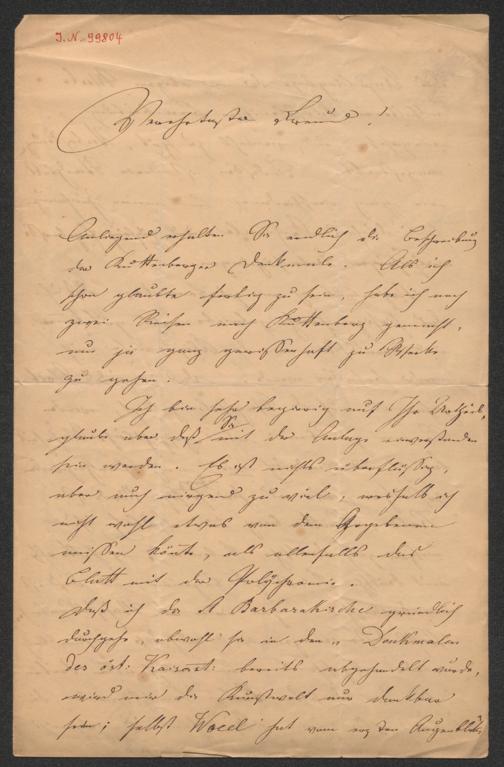 J.N. 99804
Verehrtester Freund!
Anliegend erhalten Sie endlich die Beschreibung
der Kuttenberger Denkmale. Als ich
schon glaubte fertig zu sein, habe ich noch
zwei Reisen nach Kuttenberg gemacht,
um ja ganz gewissenhaft zu Werke
zu gehen.
Ich bin sehr begierig auf Ihr Urtheil,
glaube aber daß Sie mit der Anlage einverstanden
sein werden. Es ist nichts überflüssig,
aber auch nirgend zu viel, weshalb ich
nicht wohl etwas von dem Gegebenen
missen könte, als allenfalls das
Blatt mit der Polychromie.
Daß ich die St Barbarakirche gründlich
durchgehe, obwohl sie in den „Denkmalen
des öst: Kaiserst: bereits abgehandelt wurde,
wird mir die Kunstwelt nur dankbar
sein; selbst Wocel hat vom ersten Augenblick